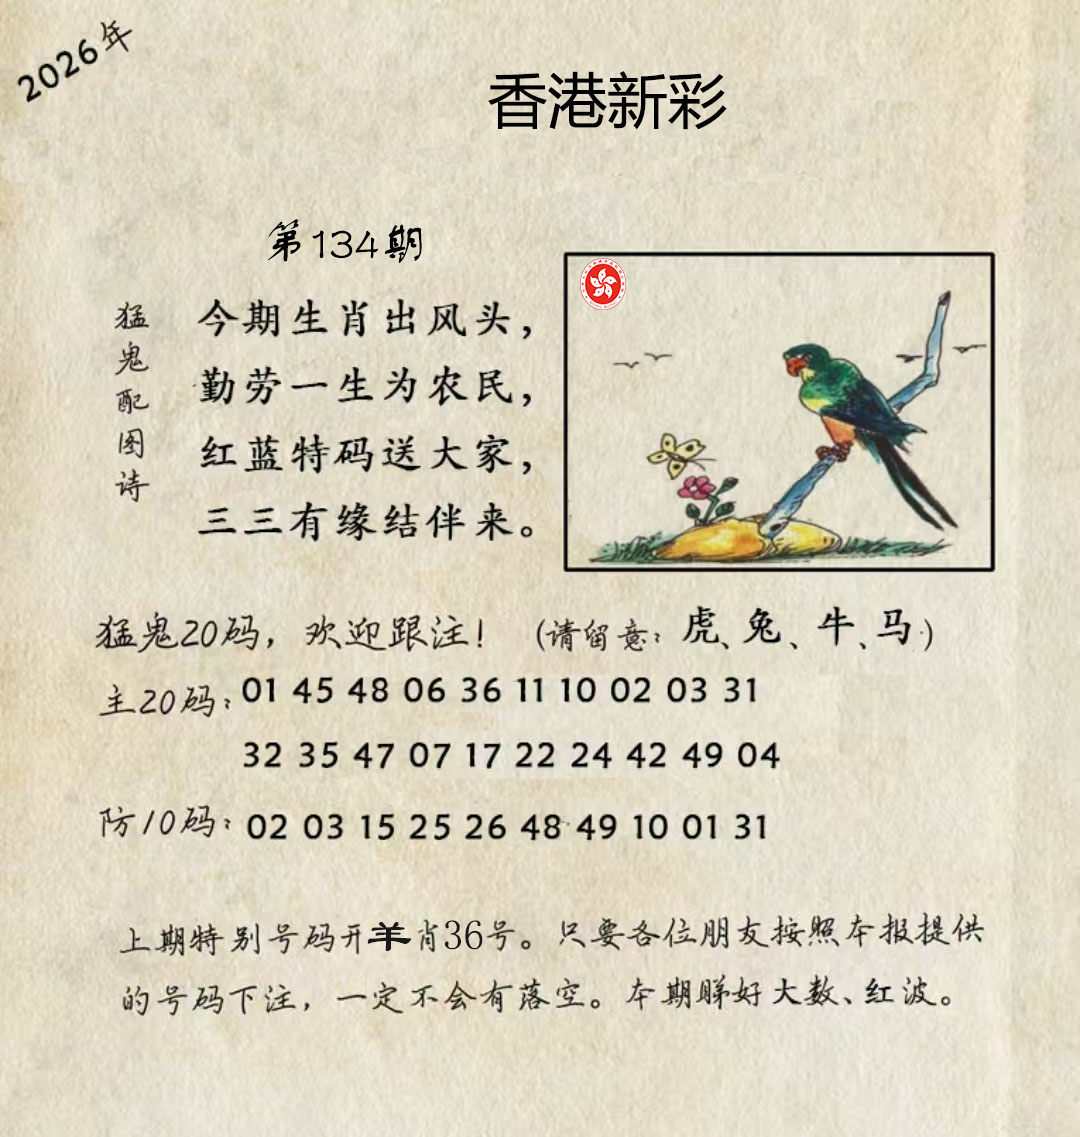 2026年
香港新彩
第134期
猛鬼配图诗
今期生肖出风头，
勤劳一生为农民，
红蓝特码送大家，
三三有缘结伴来。
猛鬼20码，欢迎跟注！（请留意：虎、兔、牛、马.）
主20码：01 45 48 06 36 11 10 02 03 31
32 35 47 07 17 22 24 42 49 04
防10码：02 03 15 25 26 48 49 10 01 31
上期特别号码开羊肖36号。只要各位朋友按照本报提供
的号码下注，一定不会有落空。本期睇好大数、红波。